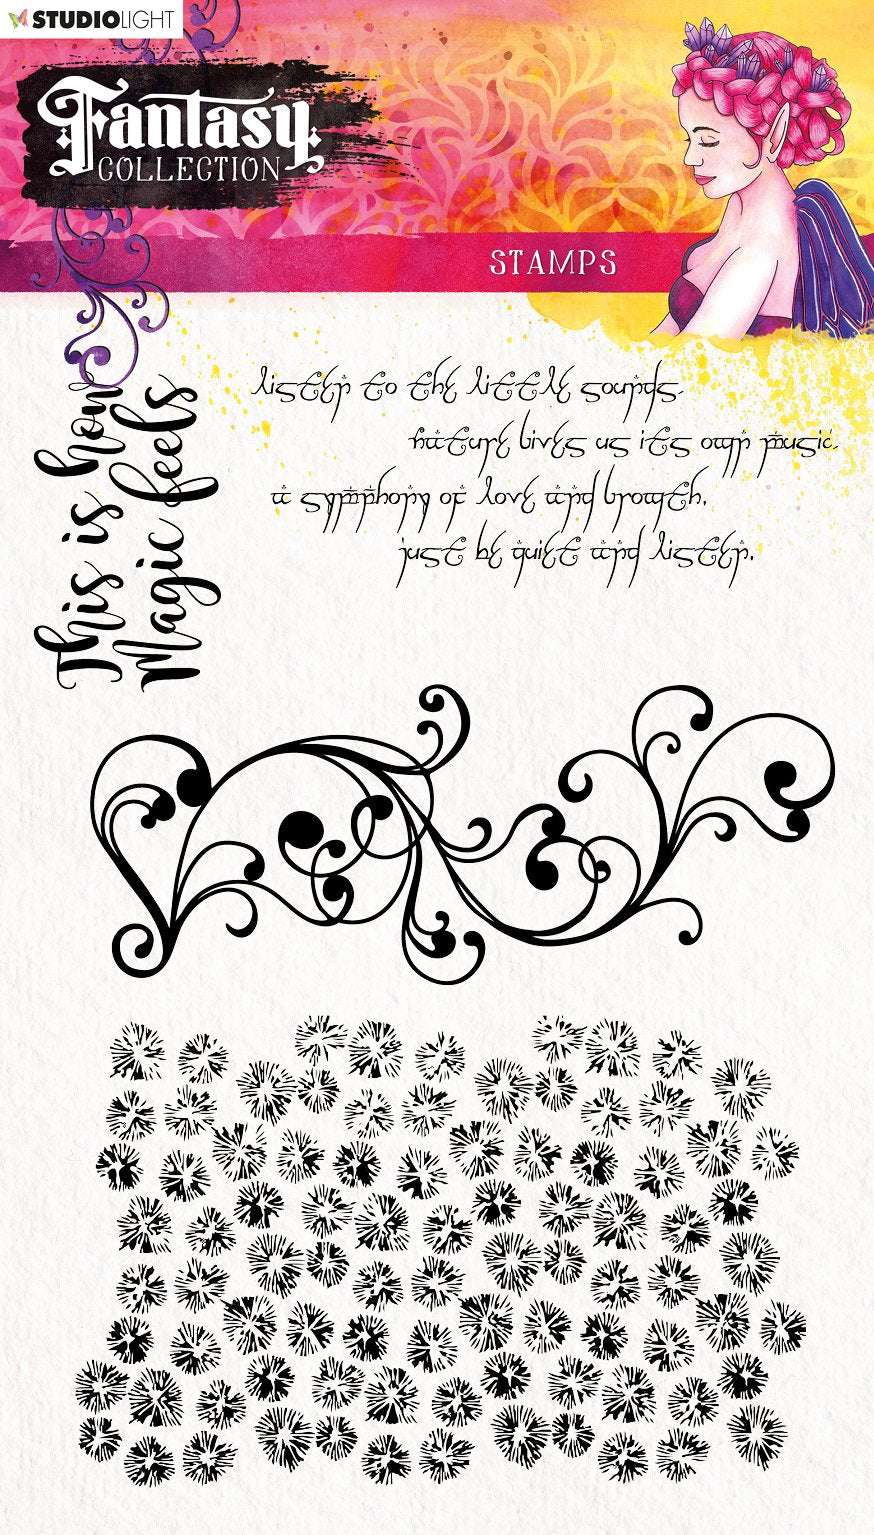 STUDIOLIGHT
Fantasy
COLLECTION
STAMPS
This is how
Magic feels
listen to the little sounds.
nature gives us its own music.
a symphony of love and growth,
just be quiet and listen.